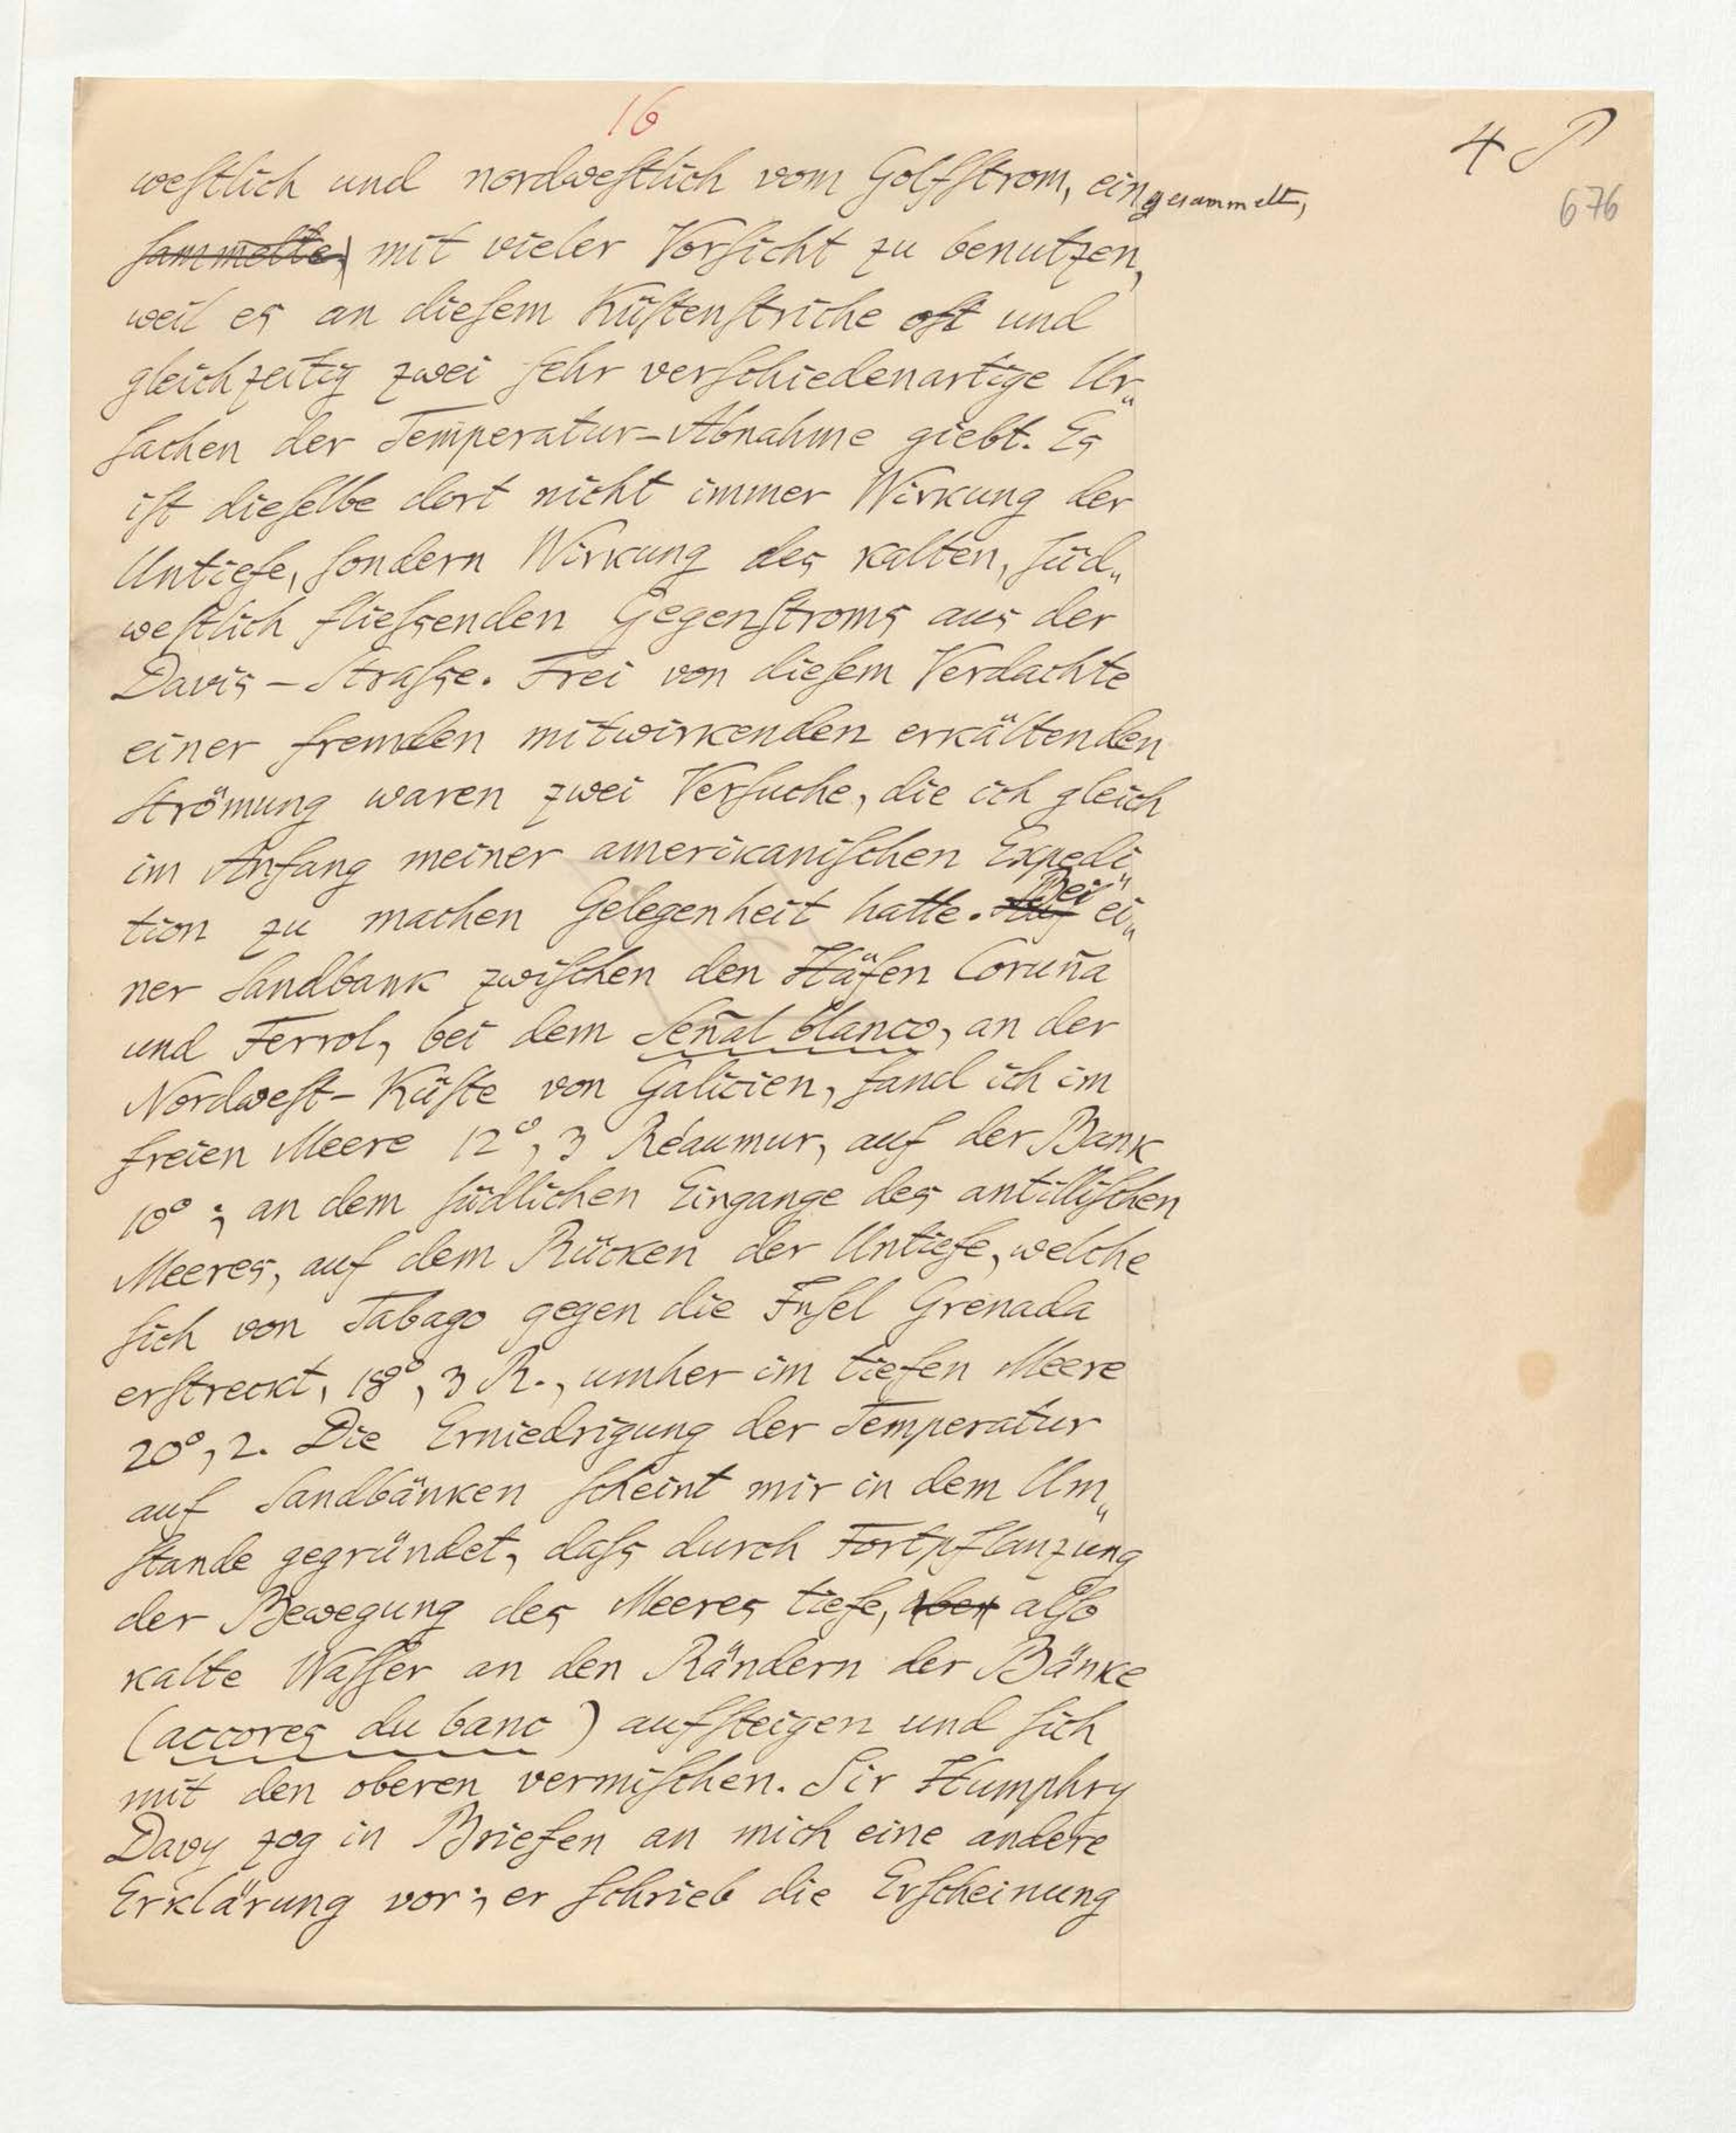 16
4
676
westlich und nordwestlich vom Golfstrom, eingesammelt,
sammelte mit vieler Vorsicht zu benutzen,
weil es an diesem Küstenstriche oft und
gleichzeitig zwei sehr verschiedenartige Ur„
sachen der Temperatur-Abnahme giebt. Es
ist dieselbe dort nicht immer Wirkung der
Untiefe, sondern Wirkung des kalten, süd„
westlich fliessenden Gegenstroms aus der
Davis-Strasse. Frei von diesem Verdachte
einer fremden mitwirkenden erkältenden
Strömung waren zwei Versuche, die ich gleich
im Anfang meiner amerikanischen Expedi„
tion zu machen Gelegenheit hatte. Auf Bei ei„
ner Sandbank zwischen den Häfen Coruña
und Ferrol, bei dem Señal blanco, an der
Nordwest-Küste von Galicien, fand ich im
freien Meere 12°,3 Réaumur, auf der Bank
10°; an dem südlichen Eingange des antillischen
Meeres, auf dem Rücken der Untiefe, welche
sich von Tabago gegen die Insel Grenada
erstreckt, 18°,3 R., umher im tiefen Meere
20°,2. Die Erniedrigung der Temperatur
auf Sandbänken scheint mir in dem Um„
stande gegründet, dass durch Fortpflanzung
der Bewegung des Meeres tiefe, aber also
kalte Wasser an den Rändern der Bänke
(accores du banc) aufsteigen und sich
mit den oberen vermischen. Sir Humphry
Davy zog in Briefen an mich eine andere
Erklärung vor; er schrieb die Erscheinung